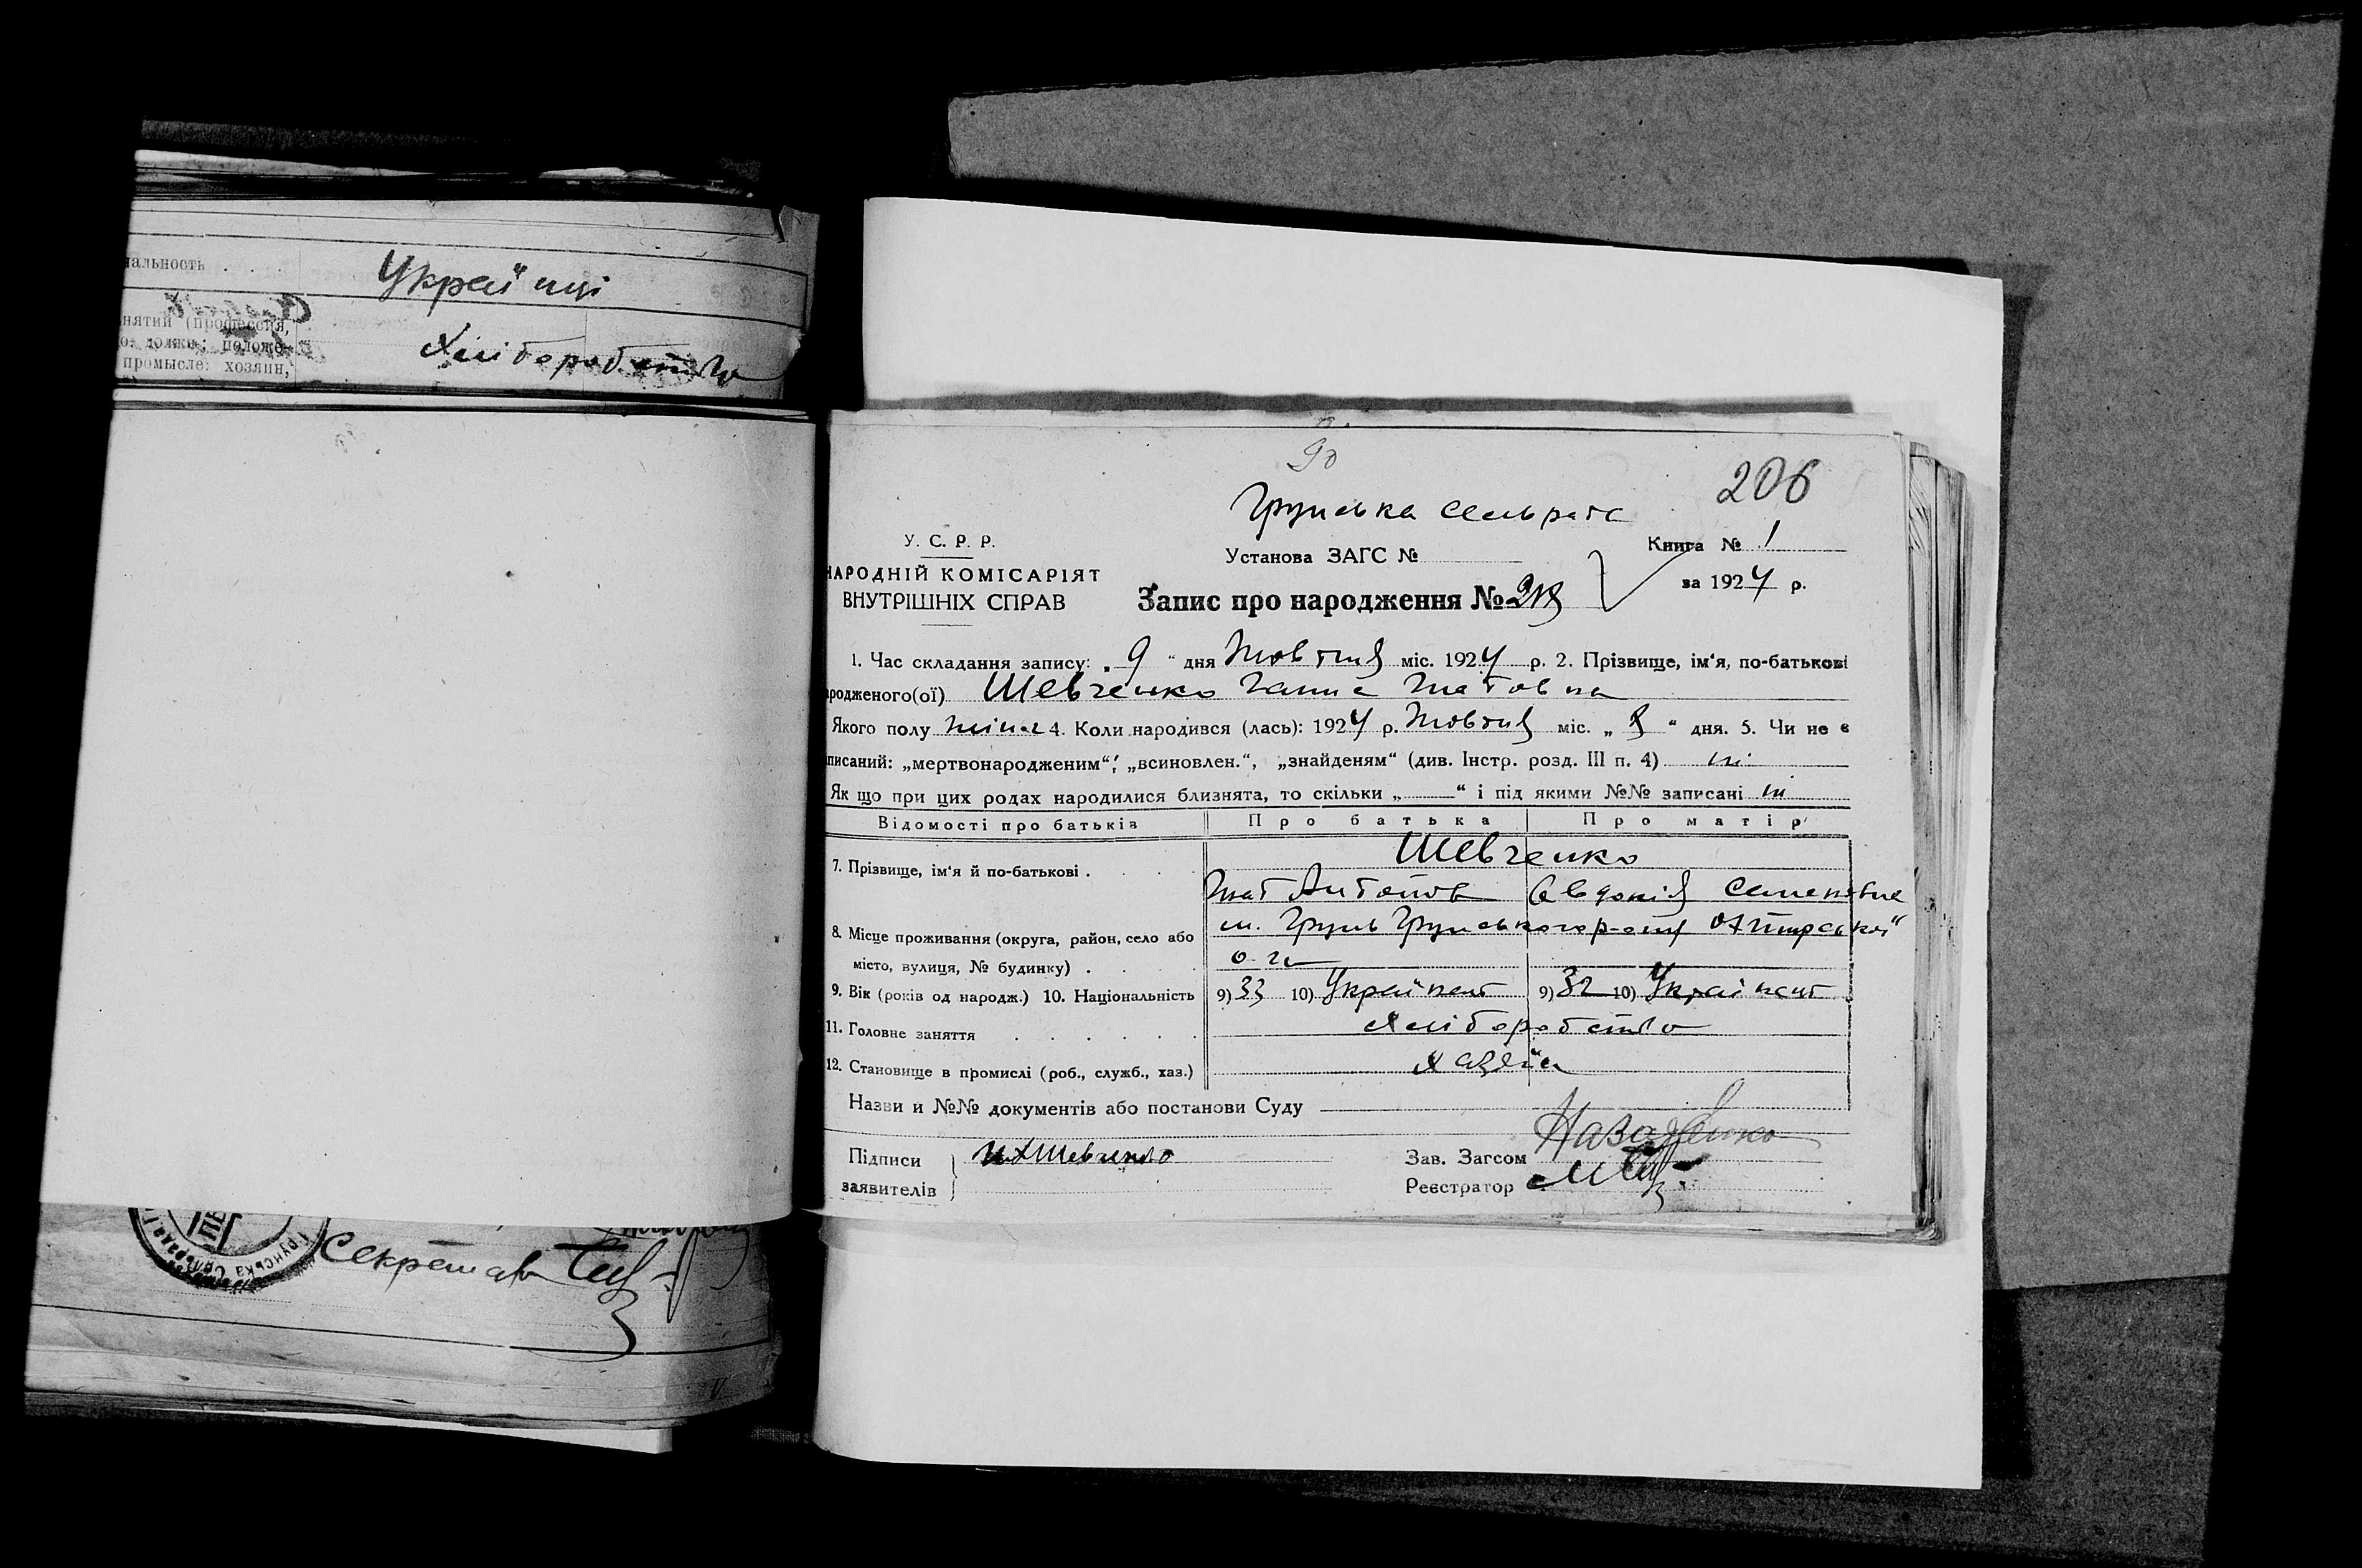 нальность
Україці
нятий (професся,
положе-
промысле: хозяин,
Хліборобство
Секретар
Грунська Сільрада
90
206
Грунська сельрата
У. С. Р. Р.
Установа ЗАГС №
Книга № 1
НАРОДНІЙ КОМІСАРІЯТ
за 1924 р.
ВНУТРІШНІХ СПРАВ
Запис про народження №
1. Час складання запису: „ 9 “ дня Жовтня міс. 1924 р. 2. Прізвище, ім‘я, по-батькові
родженого(ої) Шевченко Ганна Титовна
Якого полу жіноч 4. Коли народився (лась): 1924 р. Жовтня міс. „ 8 “ дня. 5. Чи не є
писаний: „мертвонародженим“, „всиновлен.“, „знайденям“ (див. Інстр. розд. III п. 4) ні
Як що при цих родах народилися близнята, то скільки „ — “ і під якими №№ записані ні
Відомості про батьків Про батька Про матір
7. Прізвище, ім‘я й по-батькові . Шевченко
Тит Антонов Євдокія Семеновна
8. Місце проживання (округа, район, село або м. Грунь Грунського р-ону Охтирської
місто, вулиця, № будинку) . о-ги
9. Вік (років од народж.) 10. Національність 9) 33 10) Українец 9) 32 10) Українец
11. Головне заняття Хліборобство
12. Становище в промислі (роб., служб., хаз.) хазяїн
Назви и №№ документів або постанови Суду
Підписи Шевченко Зав. Загсом Назаренко
заявителів Реєстратор